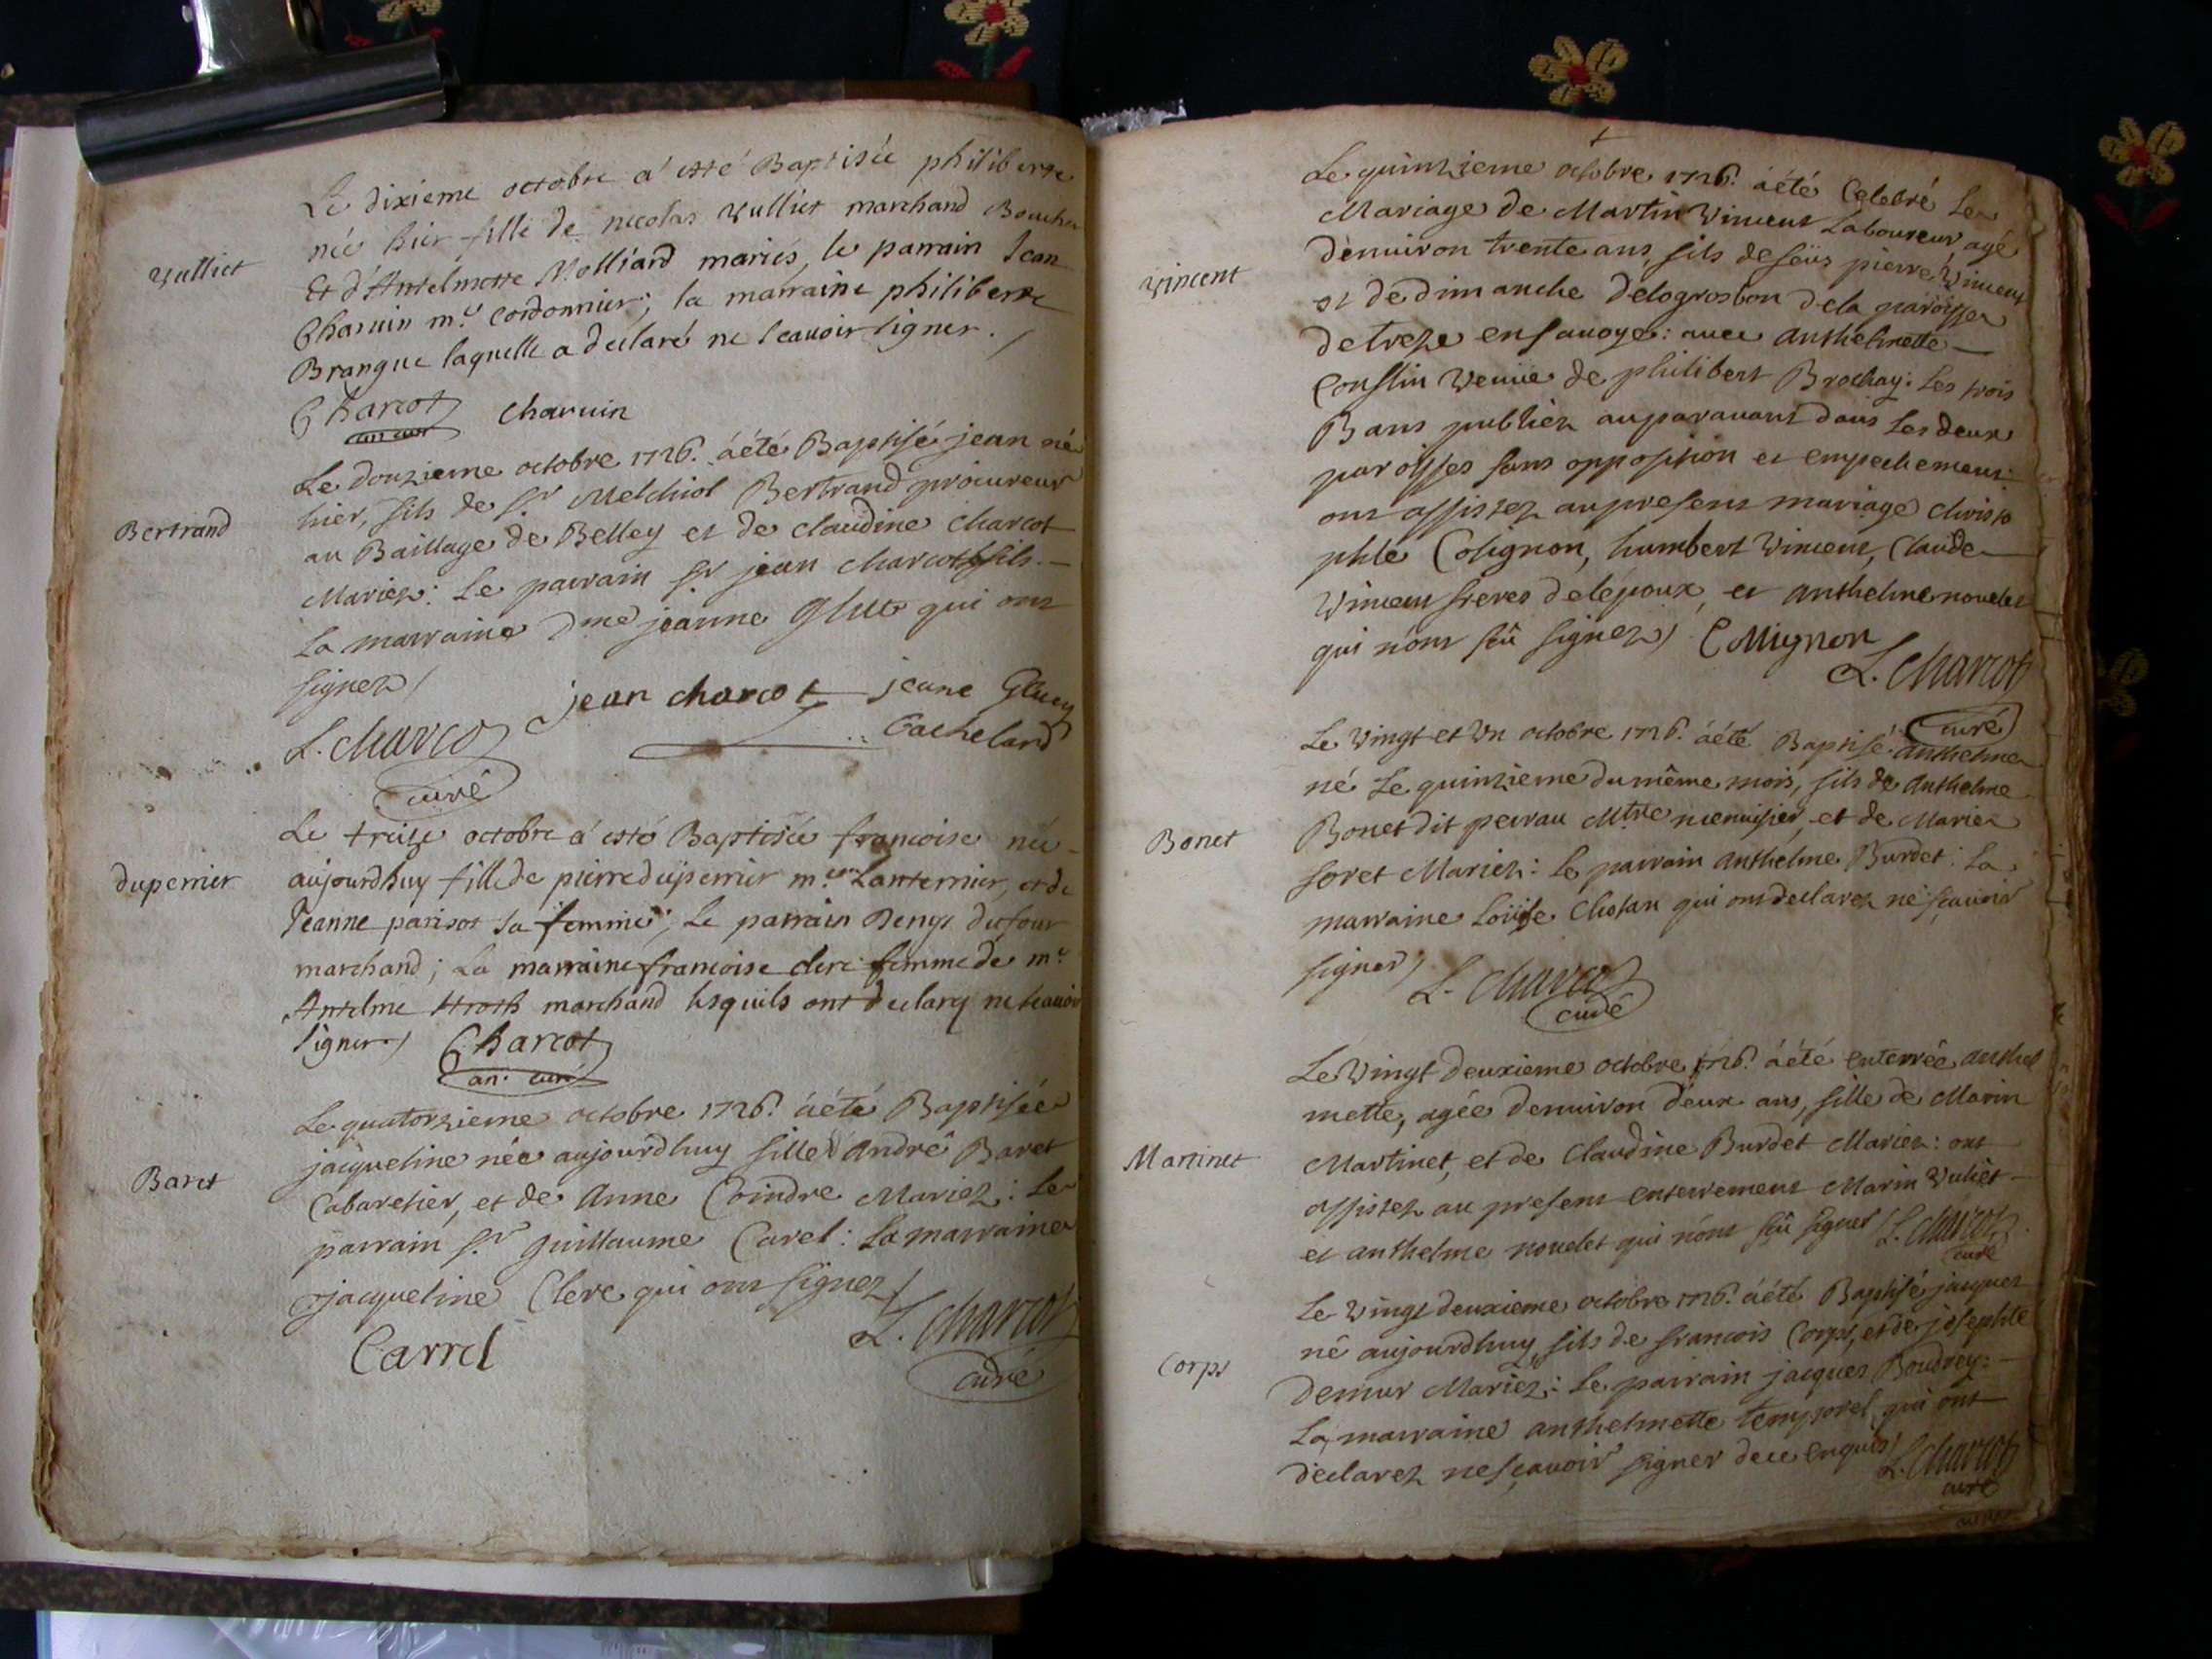 Le dixieme octobre a esté Baptisée philiberte
Vulliet
née hier fille de nicolas Vulliet marchand Boucher
Et d'Antelmette Molliard mariés, le parrain Jean
Charuin m.e cordonnier; la marraine philiberte
Brangue laquelle a declaré ne scauoir signer.
Charcot charuin
Le Douzieme octobre 1726. áété Baptisé jean né
Bertrand
hier, fils de Sr Melchiol Bertrand procureur
au Baillage de Belley et de claudine Charcot
Mariez: Le parrain Sr jean charcot fils.
La marraine Dme jeanne Glut qui ont
signez
jean charcot jeane
L. charcot Cachelard
curé
Le treize octobre a esté Baptisée francoise née
duperrier
aujourdhuy fille de pierre duperrier m.e Lanternier, et de
Jeanne parisot sa femme; Le parrain Denys dufour
marchand; La marraine francoise clerc femme de m.e
Antelme marchand lesquels ont declaré ne scauoir
signer
Charcot
an. curé
Le quatorzieme octobre 1726. áété Baptisée
jacqueline née aujourdhuy fille d'André Baret
Baret
Cabaretier, et de Anne Coindre Mariez: Le
parrain Sr Guillaume Carel: La marraine
jacqueline Clerc qui ont signez
Carrel L. charcot
curé
Le quinzieme octobre 1726. áété Celebré Le
Mariage de Martin Vincent Laboureur agé
Vincent
denuiron trente ans, fils de feüs pierre Vincent
et de dimanche delogrosbon dela paroisse
detreze en sauoye: auec anthelmette
Couslin Veuüe de philibert Brochay: Les trois
Bans publiez auparauant dans Les deux
paroisses sans opposition et empechement
ont assistez aupresent mariage christo
phle Colignon, humbert Vincent, Claude
Vincent freres del'époux, et anthelme nouelet
qui n'ont sçû signez Collignon
L. charcot
curé
Le Vingt et Vn octobre 1726. áété Baptisé anthelme
né Le quinzieme du même mois, fils de Anthelme
Bonet
Bonet dit perrau Mtre menuisier, et de Marie
foret Mariez: Le parrain anthelme Burdet: La
marraine Loüise Chotan qui ont declarez ne sçauoir
signer L. charcot
curé
Le Vingt deuxieme octobre 1726. áété enterrée anthel
mette, agée denuiron deux ans, fille de Marin
Martinet
Martinet, et de Claudine Burdet Mariez: ont
assistez au present enterrement Marin Vuliet
et anthelme nouelet qui n'ont sçû signer L. charcot
curé
Le Vingt deuxieme octobre 1726. áété Baptisé jacques
né aujourdhuy, fils de francois Corps, et de josephte
Corps
demur Mariez: Le parrain jacques Boudrey:
La marraine anthelmette temporel qui ont
declarez ne sçauoir signer de ce enquis L. charcot
curé